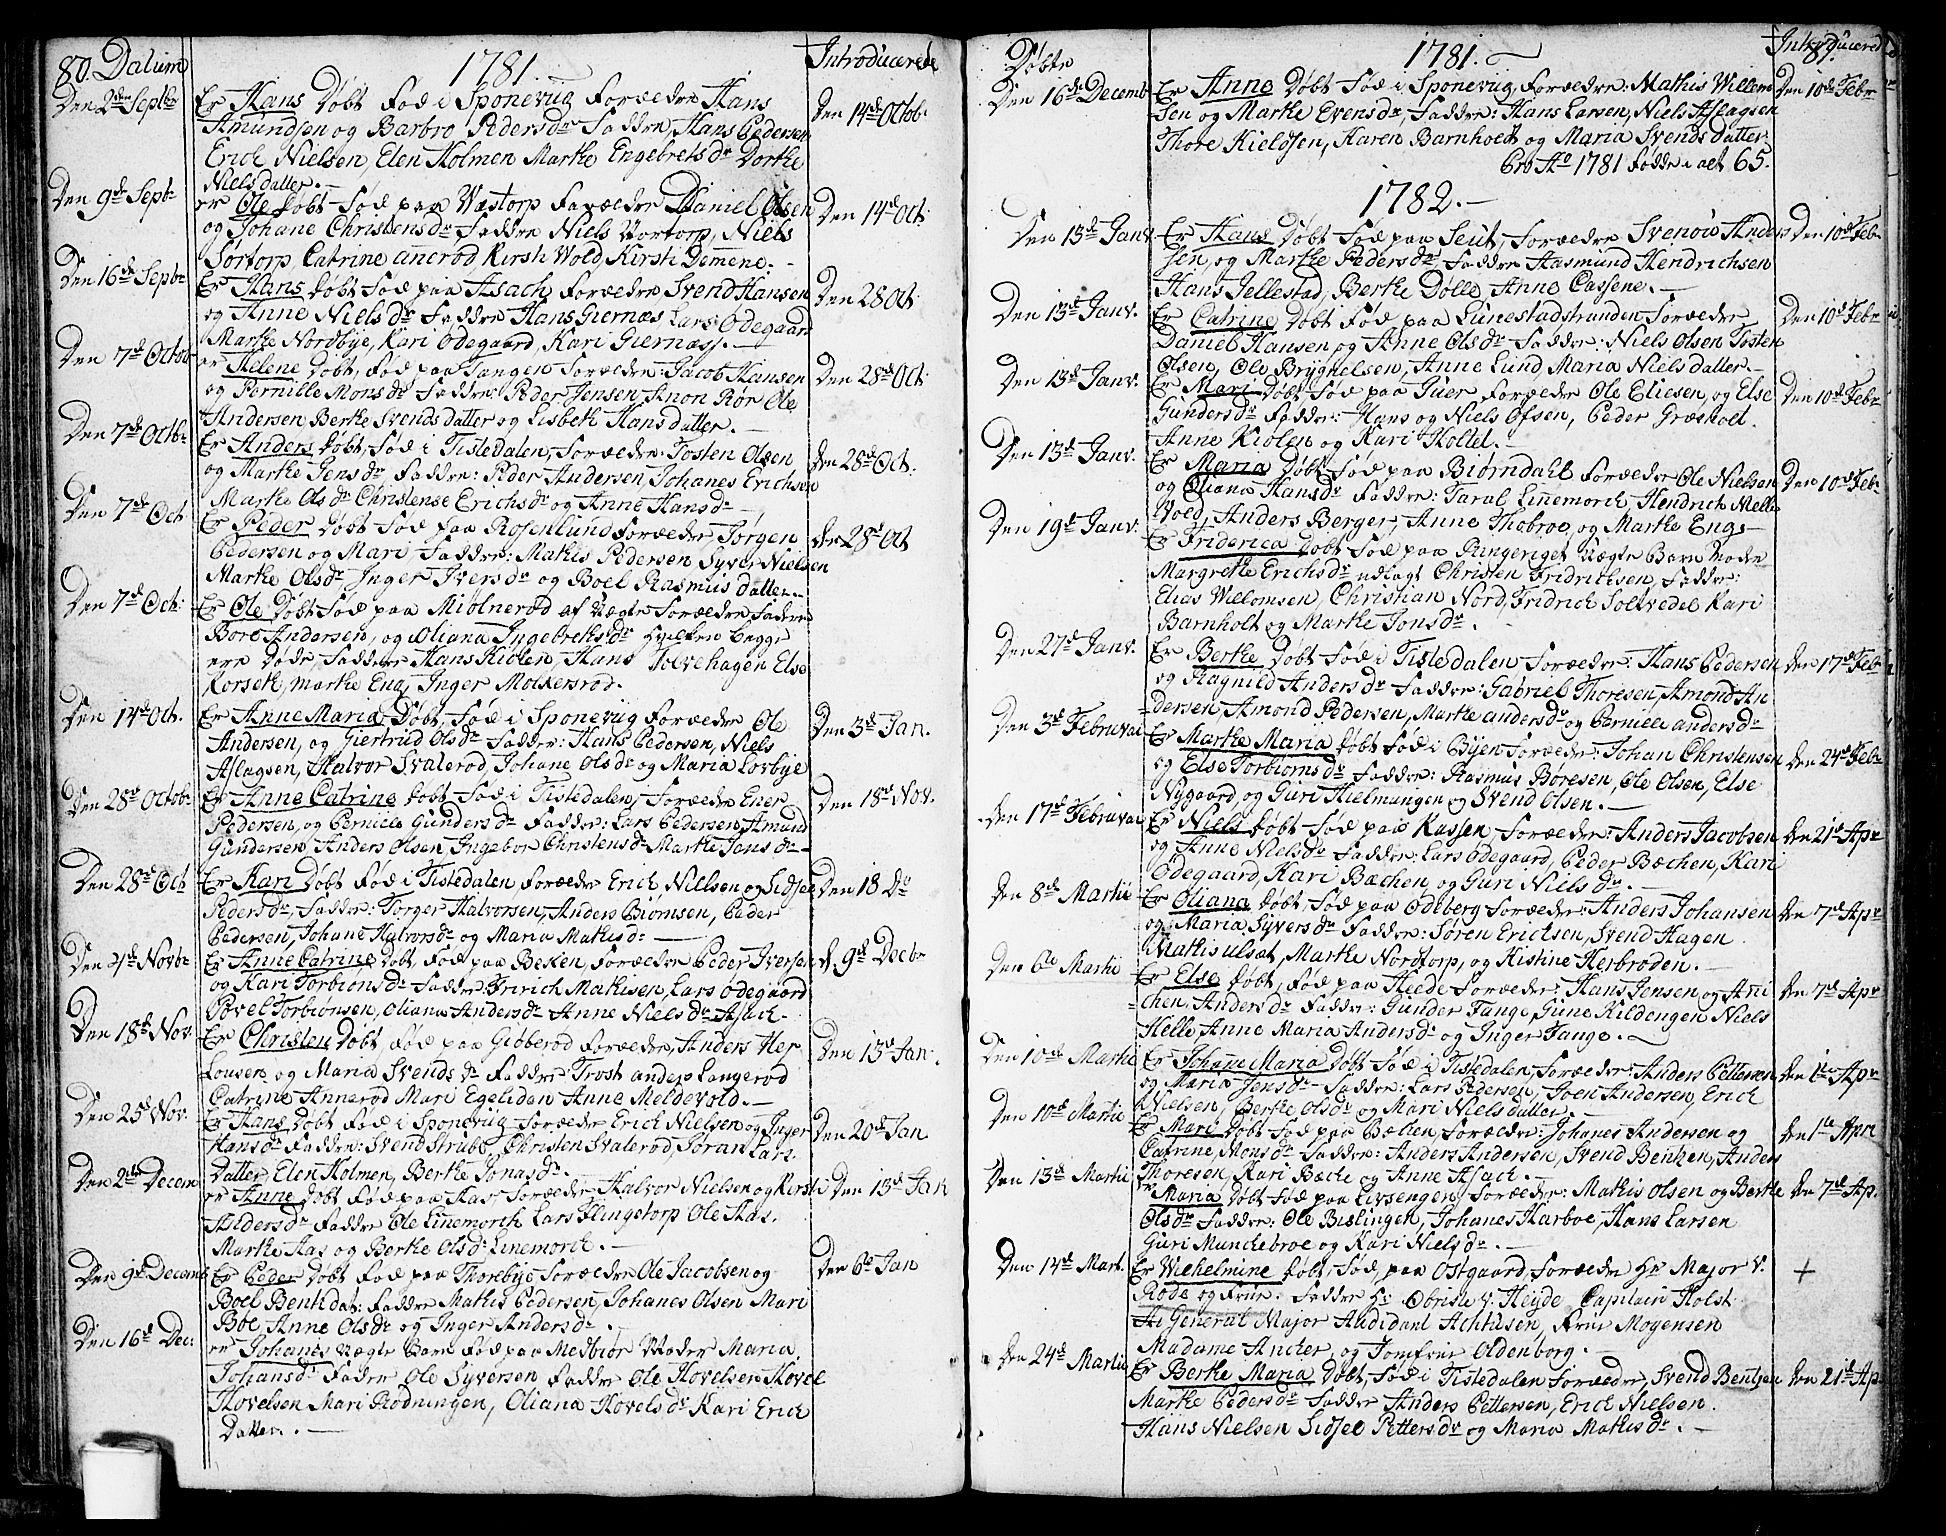 80. Datum
1781.
Introducerede
Den 2den Septbr
Er Hans Døbt Fød i Sponevig Forældre Hans
Amundsen og Barbro Peders dr Faddre, Hans Pedersen
Erich Nielsen, Elen Holmen Marthe Engebrets dr Dorthe
Niels datter.
Den 14de Octob:
Den 9de Septbr
er Ole døbt Fød paa Wæstorp Forældre Daniel Olsen
og Johane Christens dr Faddre Niels Vortorp, Niels
Sørtorp, Catrine ancrød, Kirsti Wold, Kirsti Demene.
Den 14de Oct:
Den 16de Septbr
Er Hans døbt Fød paa Asach Forældre Svend Hansen
og Anne Niels dr Faddre Hans Giernæs Lars Ødegaard
Marthe Nordbye, Kari Ødegaard, Kari Giernæss.
Den 28 Oct:
Den 7de Octob
er Helene døbt, Fød paa Tangen Forældre: Jacob Hansen
og Pernille Mons dr Faddre: Peder Jensen, Ole
Andersen, Berthe Svends datter og Lisbeth Hans datter.
Den 28de Oct:
Den 7de Octbr
Er Anders døbt, Fød i Tistedalen, Forældre: Tosten Olsen
og Marthe Jens dr Faddre: Peder Andersen, Johanes Erichsen
Marthe Ols dr Christense Erichs dr og Anne Hans dr
den 28de Oct.
Den 7de Oct
Er Peder Døbt Fød paa Rosenlund Forældre Jørgen
Pedersen og Mari Faddre: Mathis Pedersen Syver Nielsen
Marthe Ols dr Inger Ivers dr og Boel Rasmus datter.
den 28de Oct
Den 7de Oct:
Er Ole Døbt Fød paa Miølnerød af Uægte Forældre, Faderen
Bore Andersen, og Oliana Ingebreths dr hvilken begge
ere døde, Faddere Hans Kiølen, Hans Tolvehagen Else
Korseth, Marthe Eng, Inger Molkersrød.
Den 14de Oct.
Er Anne Maria Døbt, Fød i Sponevig Forældre Ole
Andersen, og Giertrud Ols dr Faddre: Hans Pedersen, Niels
Aslagsen, Halvor Svalerød, Johane Ols dr og Maria Lovbye
Den 3de Jan.
Den 28de Octobr
Er Anne Catrine døbt Fød i Tistedalen, Forældre Ener
Pedersen, og Pernille Gunders dr Faddre: Lars Pedersen, Amund
Gundersen, Anders Olsen, Ingebor Christens dr Marthe Jens dr
Den 18de Nov.
Den 28de Oct
Er Kari Døbt Fød i Tistedalen, Forældre Erich Nielsen og Lidsee
Peders dr, Faddre: Torger Halvorsen, Anders Biørnsen, Peder
Pedersen, Johane Halvors dr og Maria Mathis dr
Den 18 Do
Den 4de Novbr
Er Anne Catrine døbt Fød paa Beken, Forældre Peder Iversen
og Kari Torbiøns dr Faddre Fririch Mathisen, Lars Ødegaard
Povel Torbiønsen, Oliana Anders dr Anne Niels dr Asach.
d. 9de Decbr
Den 18de Nov.
Er Christen Døbt, Fød paa Giøberød Forældre, Anders Her
Lousen og Maria Svends dr Faddre: Trost anders Langerød
Catrine Annerød Mari Egeliden Anne Meldevold.
Den 13de Jan:
Den 25de Nov.
Er Hans Døbt Fød i Sponevig Forældre Erich Nielsen og Inger
Hans dr Faddre: Svend Strubø, Christen Svalerød, Søran Lars
datter, Elen Holmen, Berthe Jonas dr.
Den 20de Jan
Den 2den Decem
er Anne Døbt Fød paa Aas Forældre Halvor Nielsen og Kirsti
Alders dr Faddre Ole Linemorch Lars Flingstorp Ole Aas.
Marthe Aas og Berthe Ols dr Linemorch.
Den 13de Jan
Den 9de Decemb
Er Peder Døbt Fød paa Thorebye Forældre Ole Jacobsen og
Boel Bent dat: Faddre Mathis Pedersen, Johanes Olsen Mari
Boe Anne Ols dr og Inger Anders dr.
Den 6te Jan
Den 16de Dec:
er Johanes Uægte Barn Fød paa Medbiør Moder Maria
Johans dr Fader Ole Syversen Faddre Ole Hovelsen Hovel
Hovelsen Mari Rødningen, Oliana Hovels dr Kari Erich
Datter.
Døbte
1781.
Introducered
81.
Den 16de Decemb
Er Anne Døbt Fød i Sponevig, Forældre: Mathis Willum
Sen og Marthe Evens dr, Faddre: Hans Larsen, Niels Aslagsen
Thore Kieldsen, Karen Barnholdt og Maria Svends Datter
Den 10de Febr
Pro Ao 1781 Fødde i alt 65.
1782.
Den 13de Janv.
Er Hans Døbt Fød paa Seut, Forældre Svenou Anders
Sen, og Marthe Peders dr Faddre Aasmund Hendrichsen
Hans Jellestad, Berthe Dølle, Anne Cassene.
Den 10de Feb
Den 13de Janv.
Er Catrine Døbt Fød paa Lunestadstranden Forældre
Daniel Hansen og Anne Ols dr Faddre: Niels Olsen Tosten
Olsen, Ole Brynhelsen, Anne Lund Maria Niels datter.
Den 10de Febr
Den 13de Janv.
Er Mari Døbt Fød paa Juer Forældre Ole Eliesen, og Else
Gunders dr Faddre: Hans og Niels Olsen, Peder Græsholt.
Anne Kiølen og Kari Holtet.
Den 10de Febr
Den 13de Janv.
Er Maria Døbt Fød paa Biørndahl Forældre Ole Nielsen
og Oliana Hans dr Faddre: Taral Linemorch, Hendrich Mellem
Wold, Anders Berger, Anne Thobroe, og Marthe Eng.
Den 10de Feb
Den 19de Janv.
Er Friderica Døbt Fød paa Ringeriget Uægte Barn Moder
Margrethe Erichs dr udlagt Christen Fridrichsen, Faddre:
Elias Willomsen, Christian Nord, Fridrich Soltvedel Kari
Barnholt og Marthe Jons dr.
Den 27de Janv.
Er Berthe Døbt Fød i Tistedalen Forældre: Hans Pedersen
og Ragnild Anders dr Faddre: Gabriel Thoresen, Amond An
dersen, Amond Pedersen, Marthe anders dr og Pernille anders dr
den 17de Febr
Den 3de Februvari
Er Marthe Maria døbt Fød i Byen Forældre: Johan Christensen
og Else Torbiørns dr Faddre: Rasmus Børesen, Ole Olsen, Else
Nygaard, og Guri Hielmungen og Svend Olsen.
den 24de Febr
den 17de Februvari
Er Niels døbt Fød paa Kassen Forældre: Anders Jacobsen
og Anne Niels dr Faddre: Lars Ødegaard, Peder Bæchen, Kari
Ødegaard, Kari Bæchen, og Guri Niels dr.
den 21de Apr
den 8de Martii
Er Oliana døbt, Fød paa Odeberg Forældre: Anders Johansen
og Maria Syvers dr Faddre: Søren Erichsen, Svend Hagen
Mathis ulsæt, Marthe Nordtorp, og Kistine Herbroden.
den 7de Apr
den 6te Martii
Er Else døbt, Fød paa Heede Forældre: Hans Jensen og Ani
chen, Anders dr Faddre: Gunder Tange, Gune Kildengen Niels
Helle, Anne Maria Anders dr og Inger Tange.
den 7de Apr
den 10de Martii
Er Johane Maria Døbt Fød i Tistedalen, Forældre: Anders Pettersen
og Maria Jens dr Faddre: Lars Pedersen, Joen Andersen, Erich
Nielsen, Berthe Ols dr og Mari Niels datter.
den 1te Apr
Den 10de Martii
Er Mari Døbt Fød paa Bælien, Forældre: Johanes Andersen og
Catrine, Mons dr Faddre: Anders Andersen, Svend Bentzen, Anders
Thoresen, Kari Bæche og Anne Asach.
den 1te Apr
den 13de Martii
er Maria Døbt Fød paa Livsengen Forældre: Mathis Olsen og Berthe
Ols dr Faddre: Ole Bislingen, Johanes Harboe, Hans Larsen
Guri Munchebroe og Kari Niels dr.
den 7de Ap.
Den 14de Mart.
Er Wilhelmine døbt Fød, paa Ostgaard, Forældre Hr Major v.
Rode og Frue: Faddre Hr Obriste v. Heyde Capitain Holst
Hr General Major Audidant Achtusen, Frue Mogensen
Madame Ancher, og Jomfrue Oldenborg.
+
den 24de Martii
Er Berthe Maria Døbt, Fød i Tistedalen Forældre, Svend Bentzen
Marthe Peders dr Faddre Anders Pettersen, Erich Nielsen.
Hans Nielsen Lidsel Petters dr og Maria Mathis dr.
den 21de Ap.